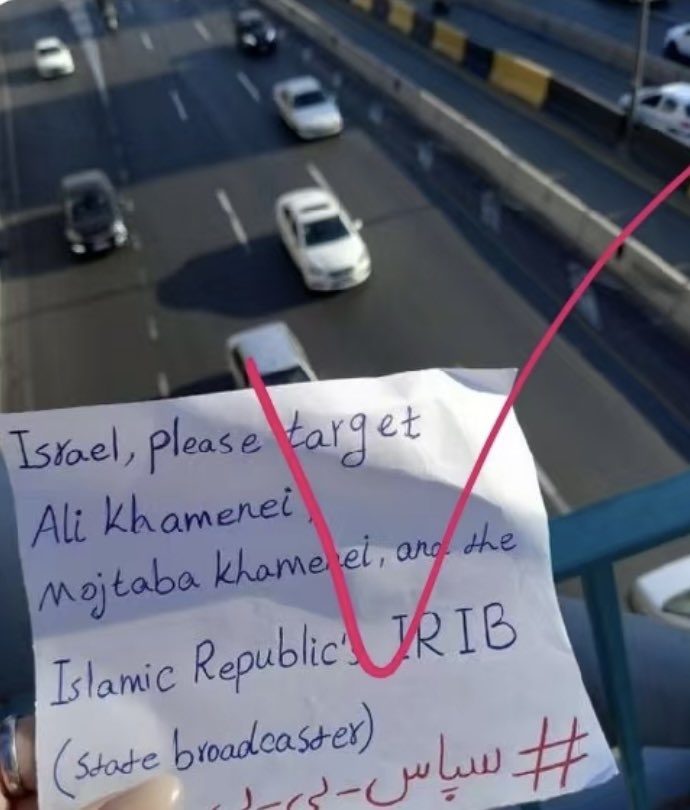 Israel, please target
Ali Khamenei,
Mojtaba Khamenei, and the
Islamic Republic's IRIB
(state broadcaster)
#سپاس-بی-بی